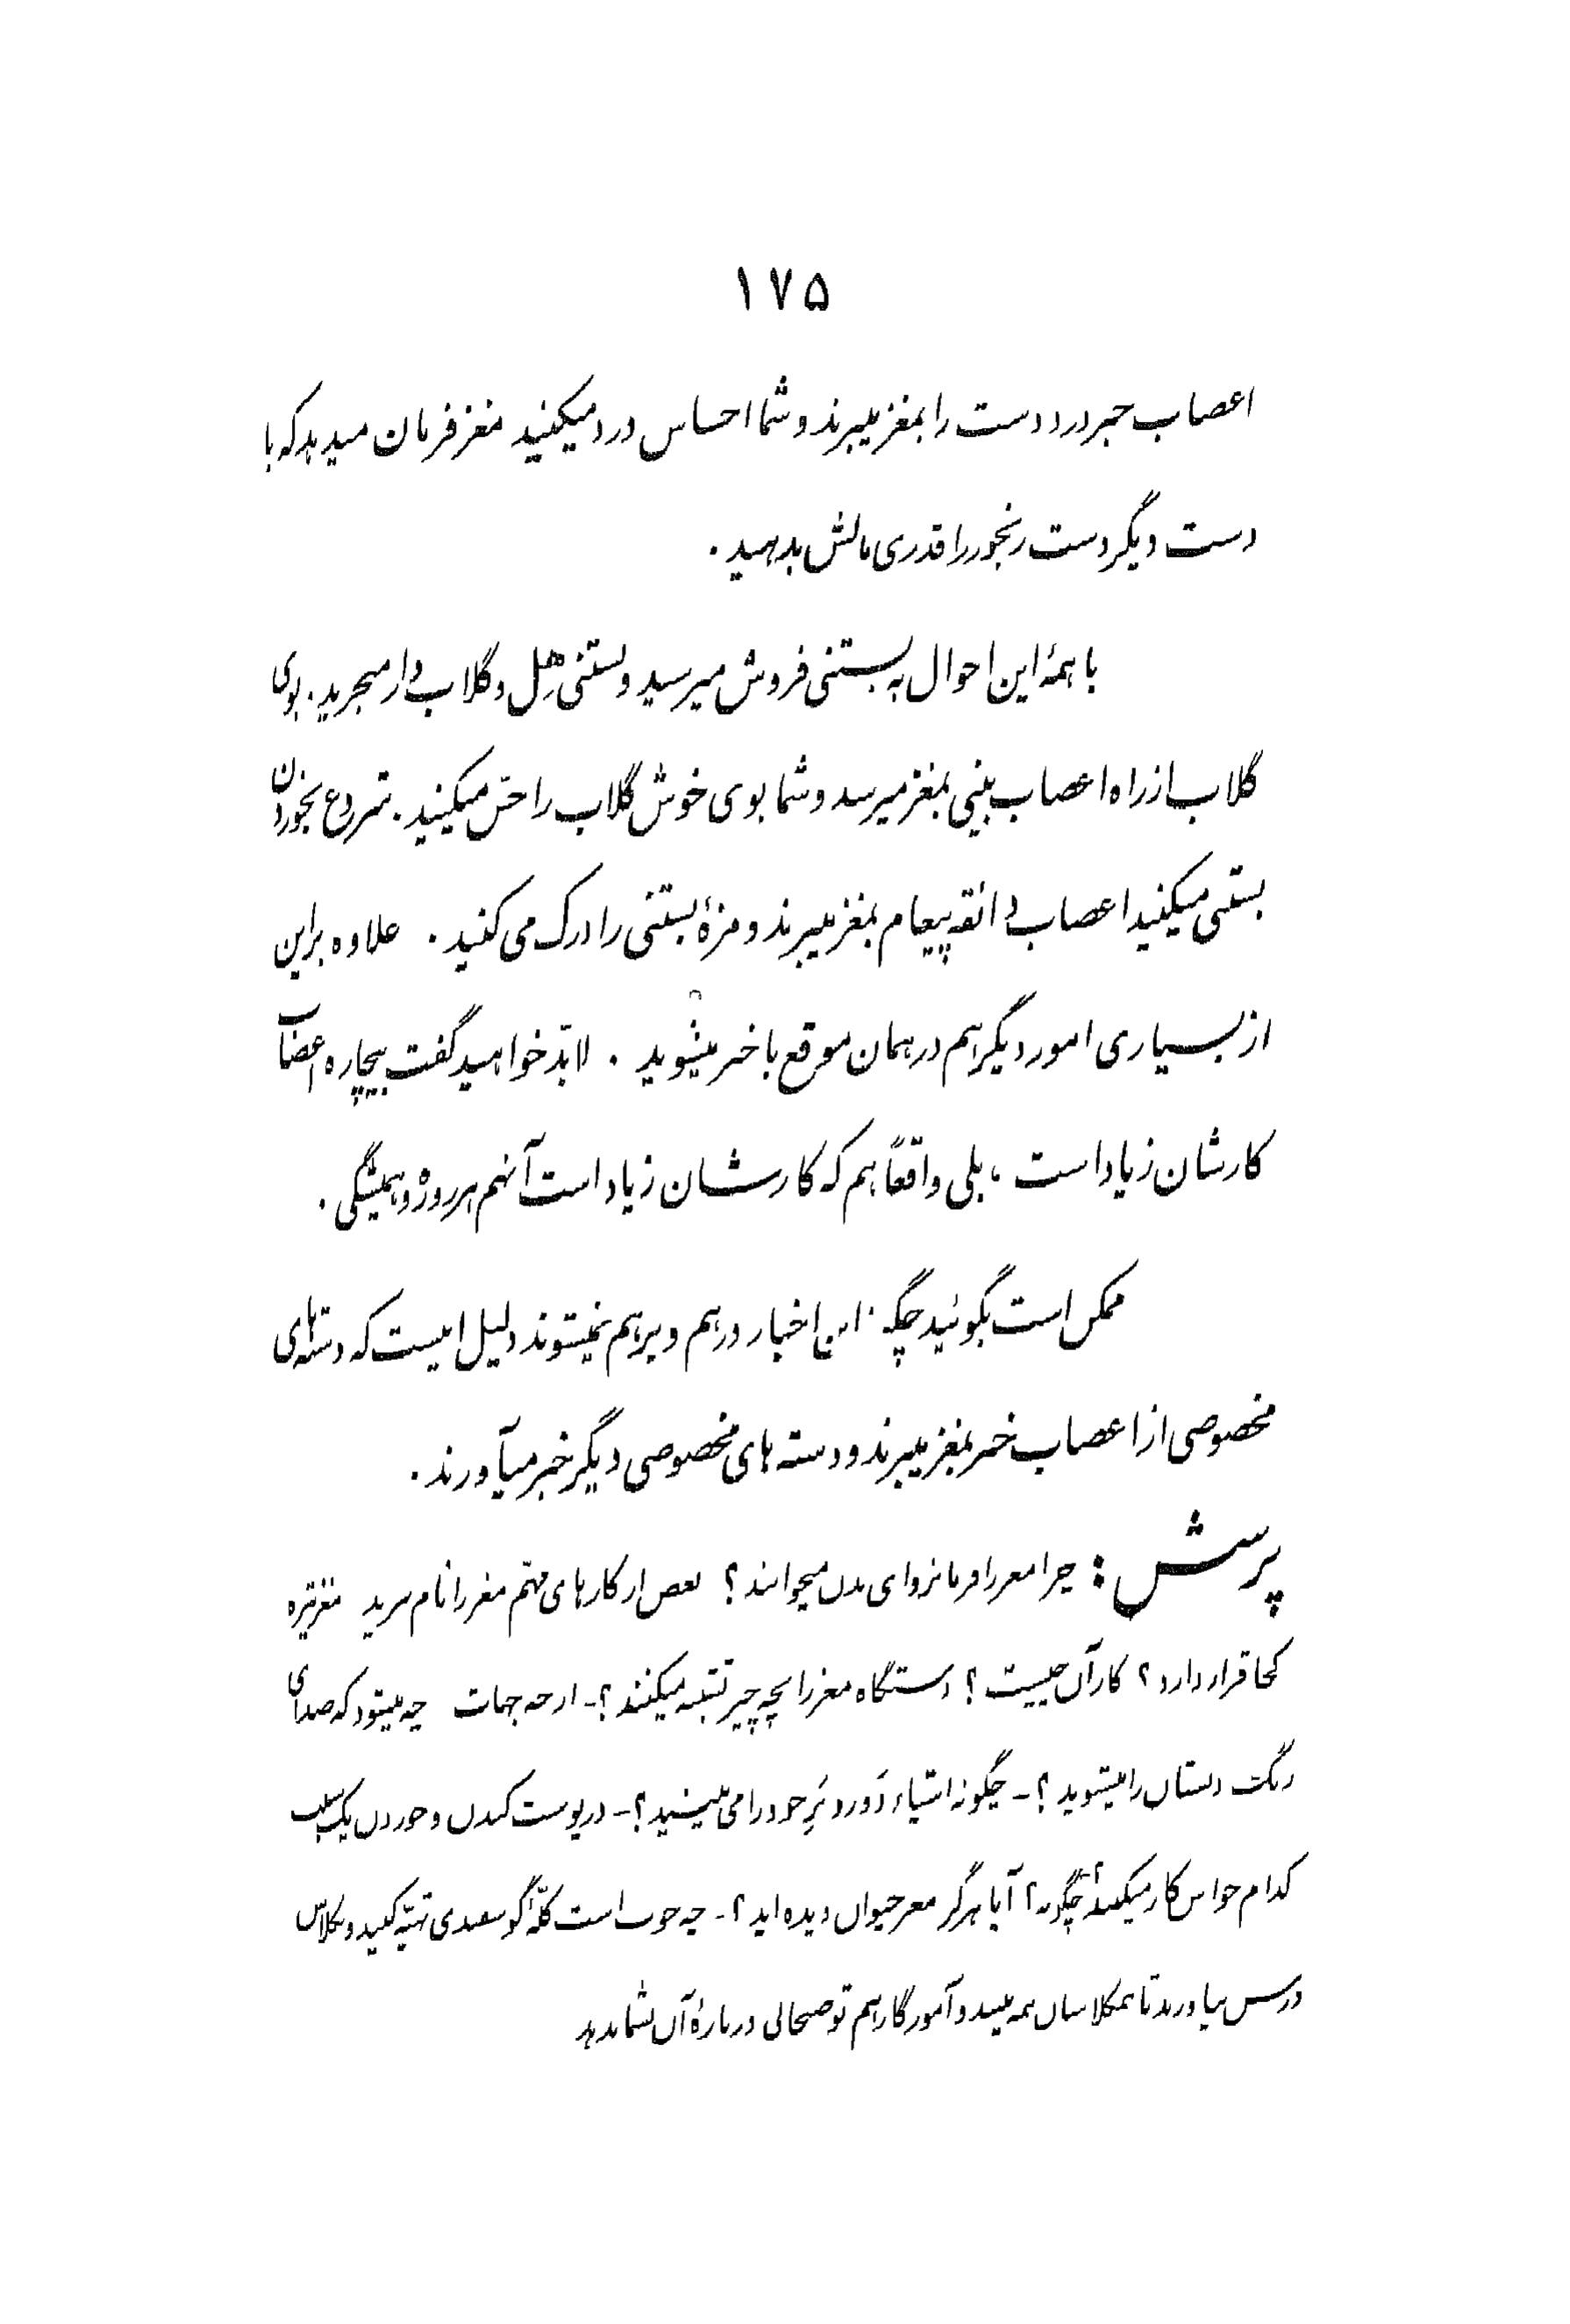 ۱۷۵
اعصاب خبر درد دست را بمغز میبرند و شما احساس درد میکنید مغز فرمان میدهد که با
دست دیگر دست رنجور را قدری مالش بدهید .
با همهٔ این احوال به بستنی فروش میرسید و بستنی هِل و گلاب دار میخرید . بوی
گلاب از راه اعصاب بینی بمغز میرسد و شما بوی خوش گلاب را حسّ میکنید . شروع بخوردن
بستنی میکنید اعصاب ذائقه پیغام بمغز میبرند و مزهٔ بستنی را درک می کنید . علاوه براین
از بسیاری امور دیگر هم در همان موقع باخبر میشوید . لابدّ خواهید گفت بیچاره اعصاب
کارشان زیاد است ، بلی واقعاً هم که کارشان زیاد است آنهم هر روزه و همیشگی .
ممکن است بگوئید چگونه این اخبار درهم و برهم نمیشوند دلیل اینست که دسته‌های
مخصوصی از اعصاب خبر بمغز میبرند و دسته های مخصوصی دیگر خبر میآورند .
پرسش : چرا مغز را فرمانروای بدن میخوانند ؟ بعضی از کارهای مهمّ مغز را نام ببرید مغز تیره
کجا قرار دارد ؟ کار آن چیست ؟ دستگاه مغز را بچه چیز تشبیه میکنند ؟ - از چه جهات چه میشود که صدای
زنگ دبستان را میشنوید ؟ - چگونه اشیاء دَور و بَرِ خود را می بینید ؟ - در پوست کندن و خوردن یک سیب
کدام حواس کار میکنند ؟ چگونه ؟ آیا هرگز مغز حیوان دیده اید ؟ - چه خوب است کلّهٔ گوسفندی تهیّه کنید و بکلاس
درس بیاورید تا همکلاسان همه ببینند و آموزگار هم توضیحاتی دربارهٔ آن بشما بدهد